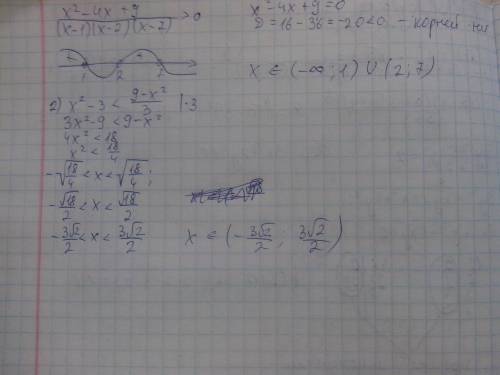 x² - 4x + 9 / (x-1)(x-2)(x-7) > 0
x² - 4x + 9 = 0
D = 16 - 36 = -20 < 0 - корней нет
- + - +
1 2 7
x ∈ (-∞; 1) ∪ (2; 7)
2) x² - 3 < 9-x²/3 |·3
3x² - 9 < 9 - x²
4x² < 18
x² < 18/4
-√18/4 < x < √18/4;
-√18/2 < x < √18/2
-3√2/2 < x < 3√2/2
x ∈ (-3√2/2; 3√2/2)